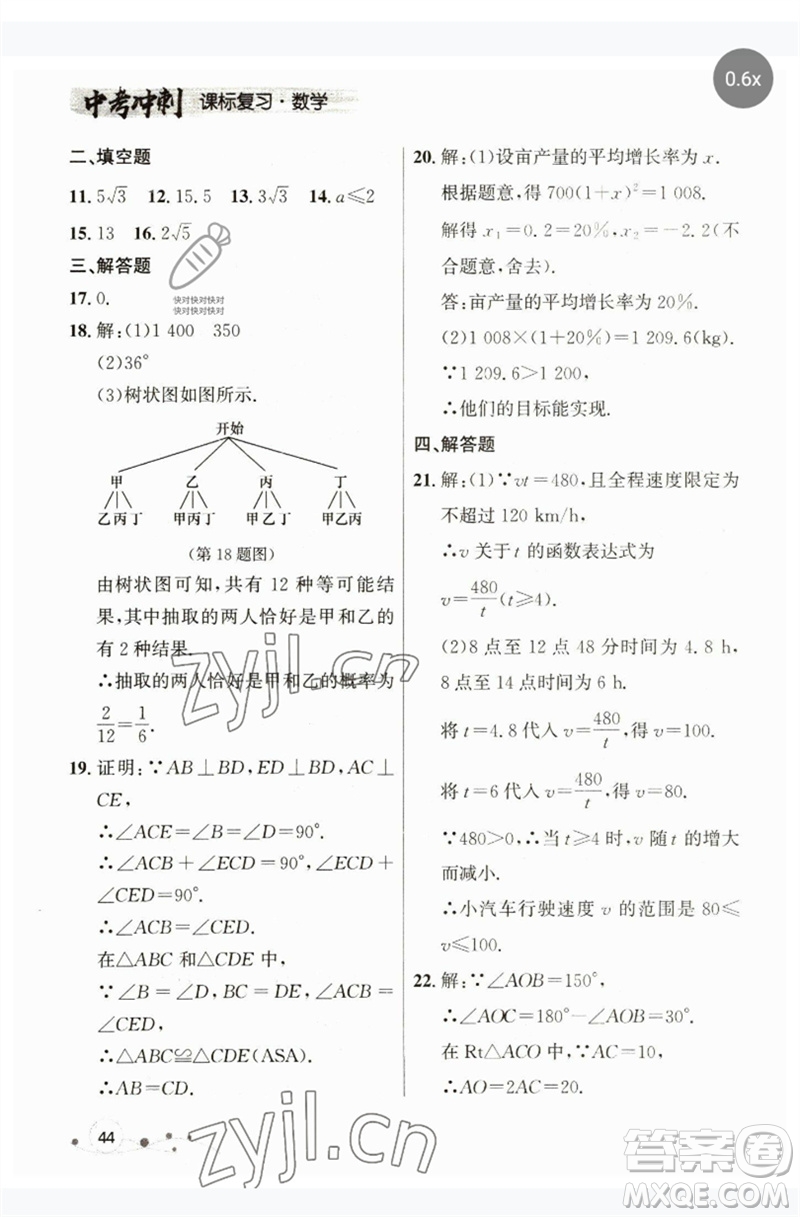 0.6x
中考冲刺 课标复习·数学
二、填空题
11. 5√3 12. 15.5 13. 3√3 14. a≤2
15. 13 16. 2√5
三、解答题
17. 0.
快对快对快对
快对快对快对
18. 解：(1)1 400 350
(2)36°
(3)树状图如图所示.
开始
甲 乙 丙 丁
乙丙丁 甲丙丁 甲乙丁 甲乙丙
(第18题图)
由树状图可知，共有 12 种等可能结
果，其中抽取的两人恰好是甲和乙的
有 2 种结果.
∴抽取的两人恰好是甲和乙的概率为
2/12=1/6.
19. 证明：∵AB⊥BD，ED⊥BD，AC⊥
CE，
∴∠ACE=∠B=∠D=90°.
∴∠ACB+∠ECD=90°，∠ECD+
∠CED=90°.
∴∠ACB=∠CED.
在△ABC 和△CDE 中，
∵∠B=∠D，BC=DE，∠ACB=
∠CED，
∴△ABC≌△CDE(ASA).
∴AB=CD.
44
20. 解：(1)设亩产量的平均增长率为 x.
根据题意，得 700(1+x)²=1 008.
解得 x₁=0.2=20%，x₂=-2.2(不
合题意，舍去).
答：亩产量的平均增长率为 20%.
(2)1 008×(1+20%)=1 209.6(kg).
∵1 209.6>1 200，
∴他们的目标能实现.
四、解答题
21. 解：(1)∵vt=480，且全程速度限定为
不超过 120 km/h，
∴v 关于 t 的函数表达式为
v=480/t(t≥4).
(2)8 点至 12 点 48 分时间为 4.8 h，
8 点至 14 点时间为 6 h.
将 t=4.8 代入 v=480/t，得 v=100.
将 t=6 代入 v=480/t，得 v=80.
∵480>0，∴当 t≥4 时，v 随 t 的增大
而减小.
∴小汽车行驶速度 v 的范围是 80≤
v≤100.
22. 解：∵∠AOB=150°，
∴∠AOC=180°-∠AOB=30°.
在 Rt△ACO 中，∵AC=10，
∴AO=2AC=20.
zyjl.cn
zyjl.cn
答案圈
MXQE.COM